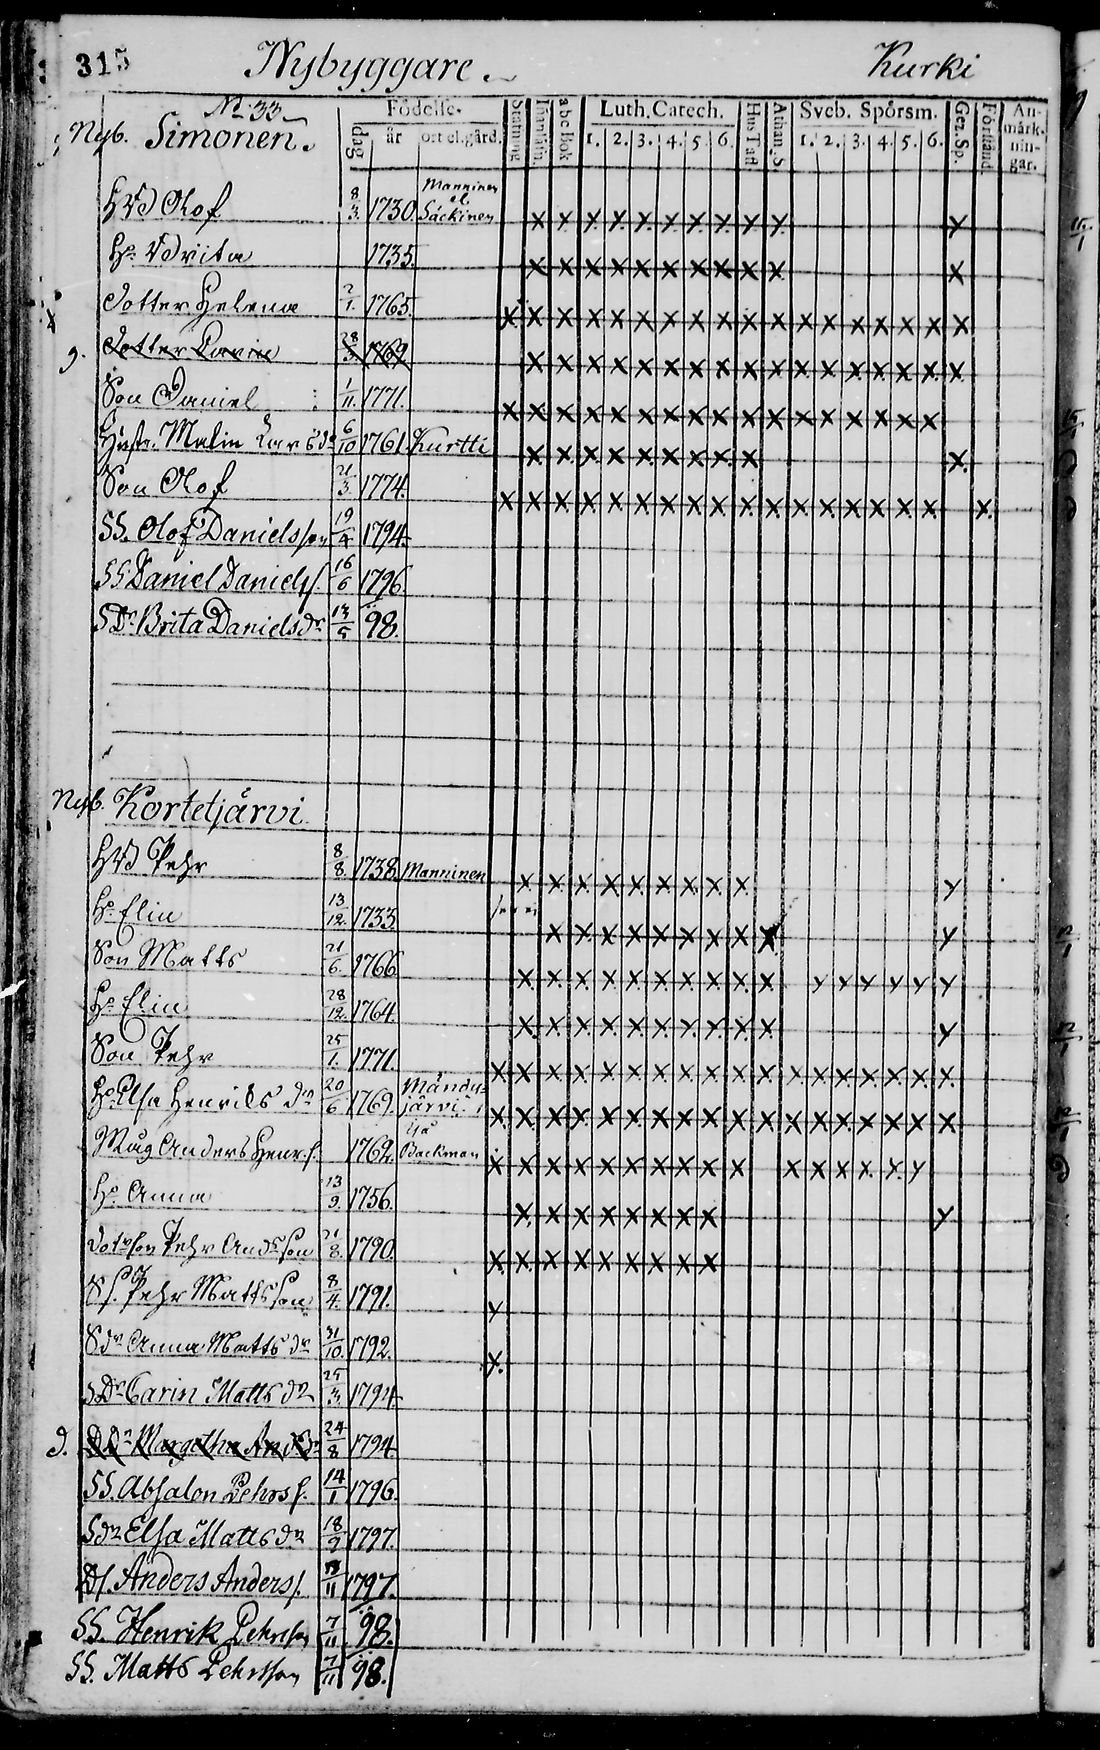 315 Nybyggare. Kurki
No 33
Nyb. Simonen.
Födelse- dag år ort el. gård. Stafning Innanläsn. a b c Bok Luth. Catech. 1. 2. 3. 4. 5. 6. Hus Tafl. Athan. S. Sveb. Spörsm. 1. 2. 3. 4. 5. 6. Gez. Sp. Förstånd. An-märk-nin-gar.
HBd Olof 8/3. 1730. Manninen el. Säckinen x x x x x x x x x x x
Ho Brita 1735. x x x x x x x x x x x
Dotter Helena 2/1. 1765. x x x x x x x x x x x x x x x x x x
9. Dotter Carin 28/3 1769 x x x x x x x x x x x x x x x x x
Son Daniel 1/11. 1771. x x x x x x x x x x x x x x x x x
Hustr. Malin Larsdr 6/10 1761. Kurtti x x x x x x x x x x
Son Olof 21/3. 1774. x x x x x x x x x x x x x x x x x x
SS. Olof Danielsson 19/4 1794
SS Daniel Daniels. 16/6 1796
SDr Brita Danielsdr 13/5 98.
Nyb. Kortetjärvi
HBd Pehr 8/8. 1738. Manninen x x x x x x x x x x
Ho Elin 13/12. 1733. x x x x x x x x x x
Son Matts 21/6. 1766 x x x x x x x x x x x x x x x x
Ho Elin 28/12. 1764. x x x x x x x x x x x
Son Pehr 25/1. 1771. x x x x x x x x x x x x x x x x x x
Ho Elsa Henricsdr 20/6 1769. Mändy=järvi x x x x x x x x x x x x x x x x x x
Måg Anders Henr.s. 1762. Backman x x x x x x x x x x x x x x x x
Ho Anna 13/9. 1756. x x x x x x x x x
Dotrson Pehr Andrson 21/8. 1790. x x x x x x x x x
Ss. Pehr Mattsson 8/4. 1791. x
Sdr Anna Mattsdr 31/10. 1792. x
SDr Carin Mattsdr 25/3. 1794
d. DDr Margetha Andrsdr 24/8 1794
SS. Absalon Pehrss. 14/1 1796.
Sdr Elsa Mattsdr 18/9 1797.
Ds. Anders Anders. 13/11 1797.
SS. Henrik Pehrsson 7/11 98.
SS. Matts Pehrsson 7/11 98.